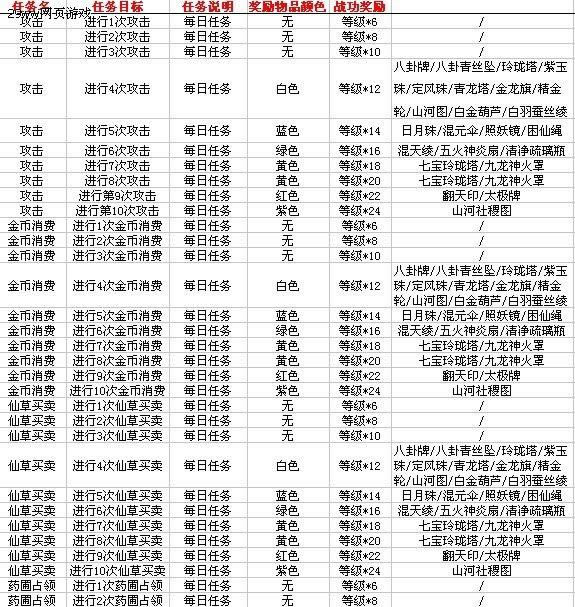 任务名 任务目标 任务说明 奖励物品颜色 战功奖励
网页游戏
攻击 进行1次攻击 每日任务 无 等级*6 /
攻击 进行2次攻击 每日任务 无 等级*8 /
攻击 进行3次攻击 每日任务 无 等级*10 /
八卦牌/八卦青丝坠/玲珑塔/紫玉
攻击 进行4次攻击 每日任务 白色 等级*12 珠/定风珠/青龙塔/金龙旗/精金
轮/山河图/白金葫芦/白羽蚕丝绫
攻击 进行5次攻击 每日任务 蓝色 等级*14 日月珠/混元伞/照妖镜/困仙绳
攻击 进行6次攻击 每日任务 绿色 等级*16 混天绫/五火神炎扇/清净琉璃瓶
攻击 进行7次攻击 每日任务 黄色 等级*18 七宝玲珑塔/九龙神火罩
攻击 进行8次攻击 每日任务 黄色 等级*20 七宝玲珑塔/九龙神火罩
攻击 进行第9次攻击 每日任务 红色 等级*22 翻天印/太极牌
攻击 进行第10次攻击 每日任务 紫色 等级*24 山河社稷图
金币消费 进行1次金币消费 每日任务 无 等级*6 /
金币消费 进行2次金币消费 每日任务 无 等级*8 /
金币消费 进行3次金币消费 每日任务 无 等级*10 /
八卦牌/八卦青丝坠/玲珑塔/紫玉
金币消费 进行4次金币消费 每日任务 白色 等级*12 珠/定风珠/青龙塔/金龙旗/精金
轮/山河图/白金葫芦/白羽蚕丝绫
金币消费 进行5次金币消费 每日任务 蓝色 等级*14 日月珠/混元伞/照妖镜/困仙绳
金币消费 进行6次金币消费 每日任务 绿色 等级*16 混天绫/五火神炎扇/清净琉璃瓶
金币消费 进行7次金币消费 每日任务 黄色 等级*18 七宝玲珑塔/九龙神火罩
金币消费 进行8次金币消费 每日任务 黄色 等级*20 七宝玲珑塔/九龙神火罩
金币消费 进行9次金币消费 每日任务 红色 等级*22 翻天印/太极牌
金币消费 进行10次金币消费 每日任务 紫色 等级*24 山河社稷图
仙草买卖 进行1次仙草买卖 每日任务 无 等级*6 /
仙草买卖 进行2次仙草买卖 每日任务 无 等级*8 /
仙草买卖 进行3次仙草买卖 每日任务 无 等级*10 /
八卦牌/八卦青丝坠/玲珑塔/紫玉
仙草买卖 进行4次仙草买卖 每日任务 白色 等级*12 珠/定风珠/青龙塔/金龙旗/精金
轮/山河图/白金葫芦/白羽蚕丝绫
仙草买卖 进行5次仙草买卖 每日任务 蓝色 等级*14 日月珠/混元伞/照妖镜/困仙绳
仙草买卖 进行6次仙草买卖 每日任务 绿色 等级*16 混天绫/五火神炎扇/清净琉璃瓶
仙草买卖 进行7次仙草买卖 每日任务 黄色 等级*18 七宝玲珑塔/九龙神火罩
仙草买卖 进行8次仙草买卖 每日任务 黄色 等级*20 七宝玲珑塔/九龙神火罩
仙草买卖 进行9次仙草买卖 每日任务 红色 等级*22 翻天印/太极牌
仙草买卖 进行10次仙草买卖 每日任务 紫色 等级*24 山河社稷图
药圃占领 进行1次药圃占领 每日任务 无 等级*6 /
药圃占领 进行2次药圃占领 每日任务 无 等级*8 /